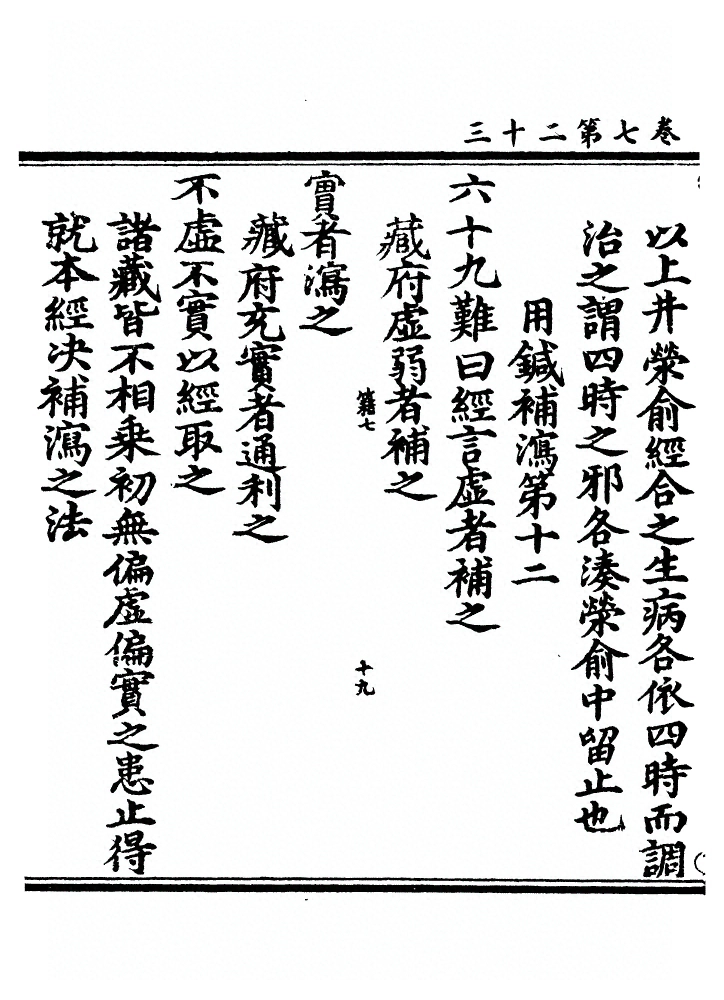 卷七第二十三
以上井滎俞經合之生病各依四時而調
治之謂四時之邪各湊滎俞中留止也
用鍼補瀉第十二
六十九難曰經言虛者補之
藏府虛弱者補之
籍七
十九
實者瀉之
藏府充實者通利之
不虛不實以經取之
諸藏皆不相乗初無偏虛偏實之患止得
就本經决補瀉之法